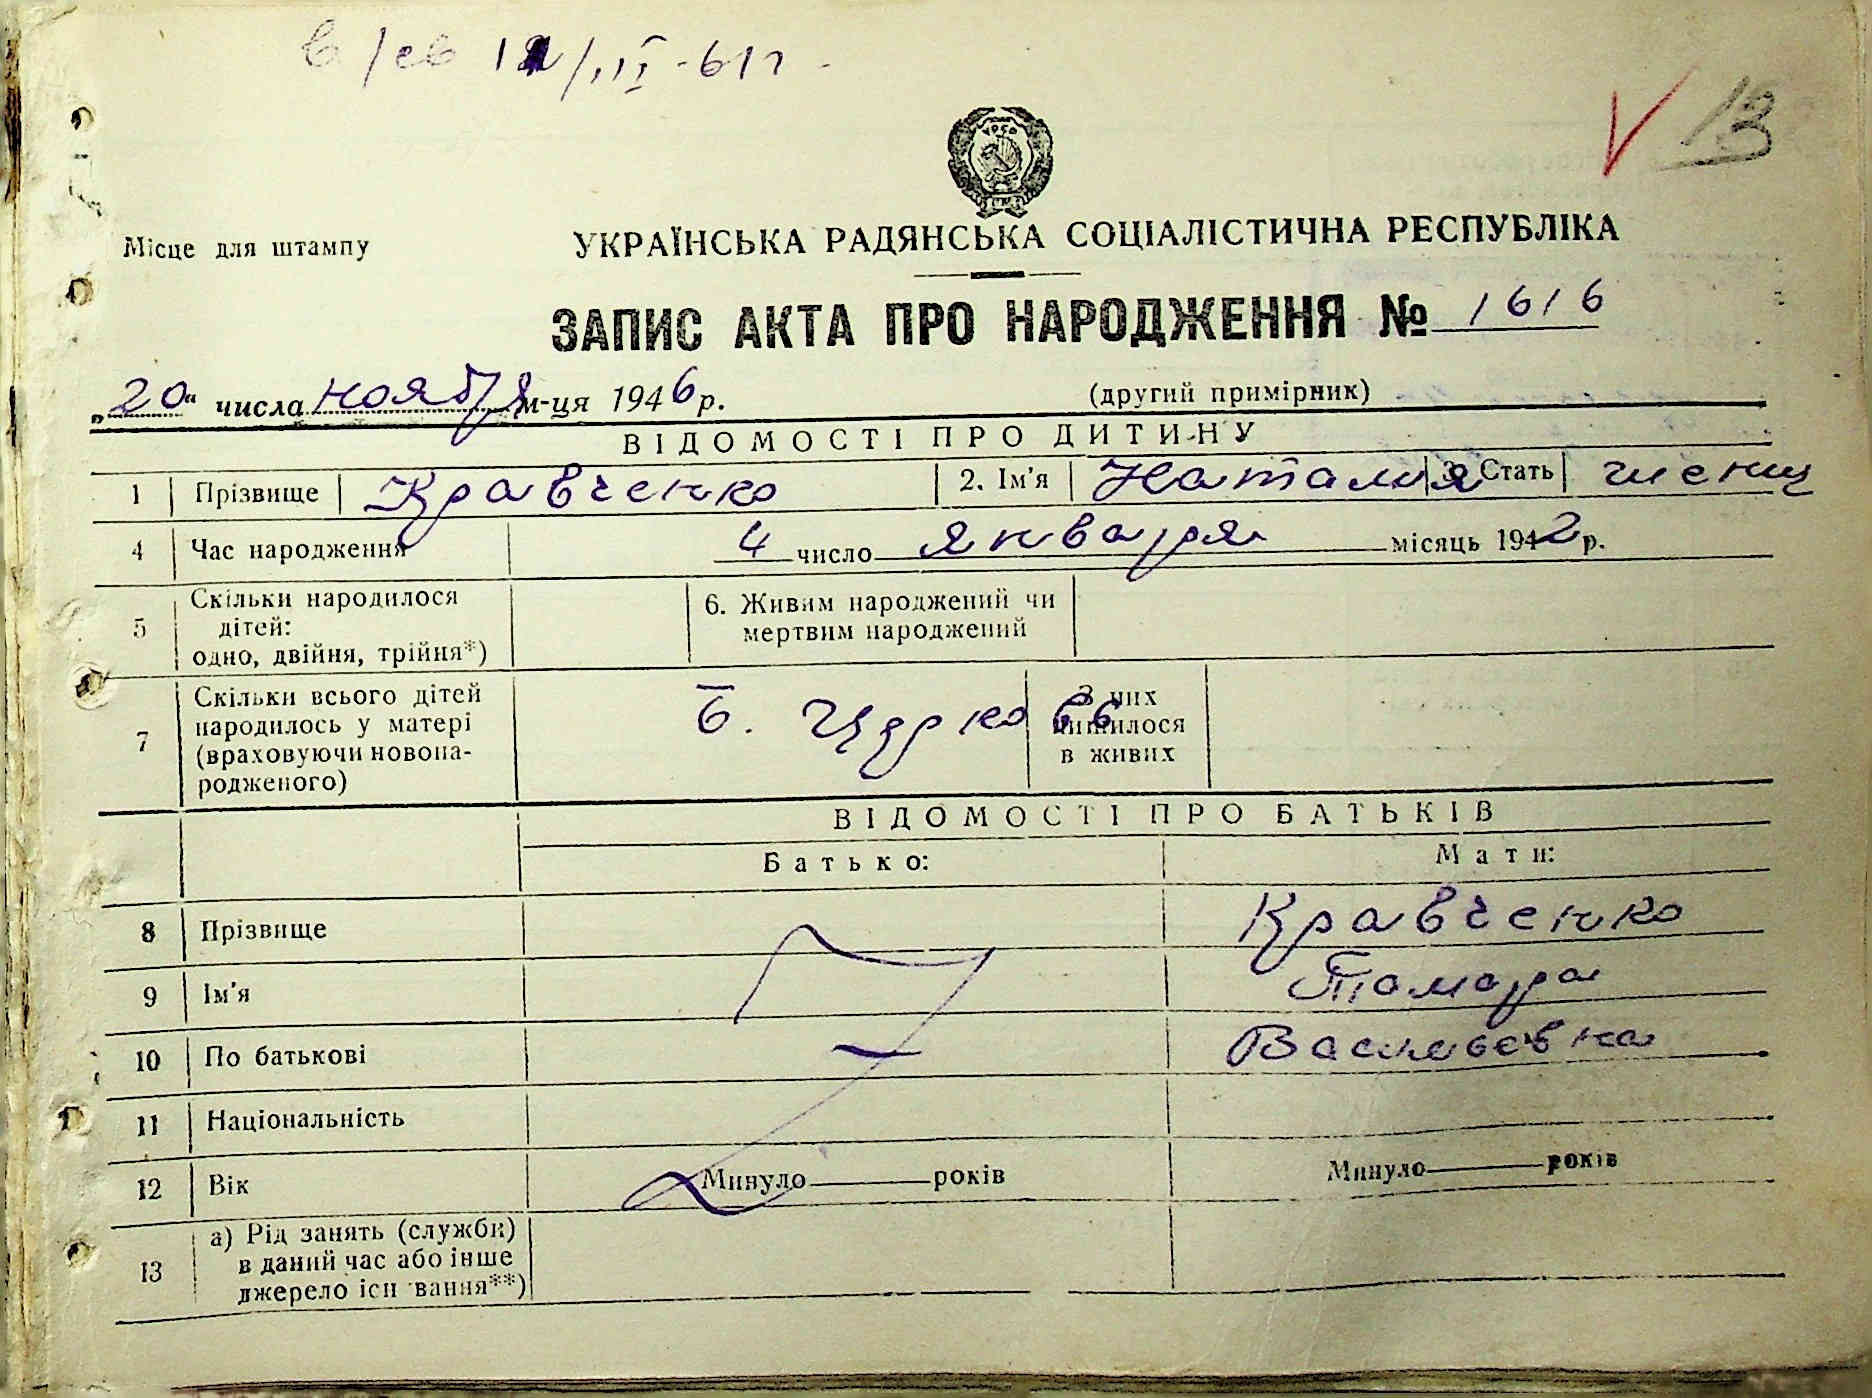 в/св 12/III-61 г.
13
УРСР
Місце для штампу
УКРАЇНСЬКА РАДЯНСЬКА СОЦІАЛІСТИЧНА РЕСПУБЛІКА
ЗАПИС АКТА ПРО НАРОДЖЕННЯ № 1616
„20" числа ноября м-ця 1946 р. (другий примірник)
ВІДОМОСТІ ПРО ДИТИНУ
1 Прізвище Кравченко 2. Ім'я Наталия 3. Стать женщ
4 Час народження 4 число января місяць 1942 р.
5 Скільки народилося дітей: одно, двійня, трійня*) 6. Живим народжений чи мертвим народжений
7 Скільки всього дітей народилось у матері (враховуючи новонародженого) Б. Церковь З них лишилося в живих
ВІДОМОСТІ ПРО БАТЬКІВ
Батько: Мати:
8 Прізвище Кравченко
9 Ім'я Тамара
10 По батькові — Васильевна
11 Національність
12 Вік Минуло років Минуло років
13 а) Рід занять (служби) в даний час або інше джерело існування**)